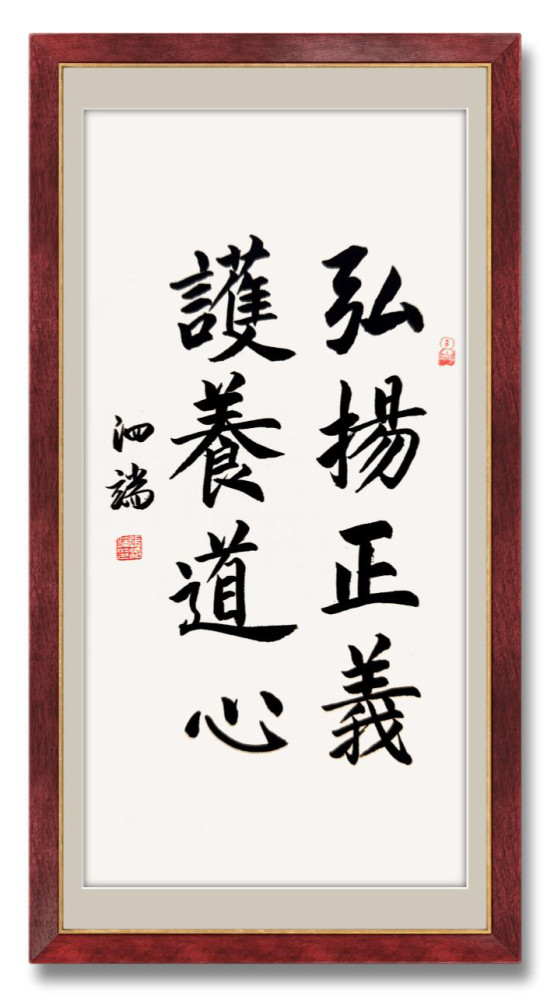 弘揚正義
護養道心
泗端